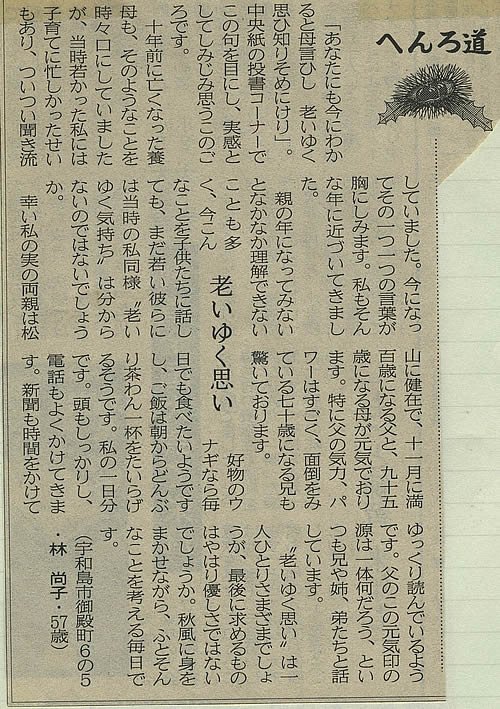 へんろ道
老いゆく思い
「あなたにも今にわか
ると母言ひし　老いゆく
思ひ知りそめにけり」。
中央紙の投書コーナーで
この句を目にし、実感と
してしみじみ思うこのご
ろです。
　十年前に亡くなった養
母も、そのようなことを
時々口にしていました
が、当時若かった私には
子育てに忙しかったせい
もあり、ついつい聞き流
していました。今になっ
てその一つ一つの言葉が
胸にしみます。私もそん
な年に近づいてきまし
た。
　親の年になってみない
となかなか理解できない
ことも多
く、今こん
なことを子供たちに話し
ても、まだ若い彼らに
は当時の私同様〝老い
ゆく気持ち〟は分から
ないのではないでしょう
か。
　幸い私の実の両親は松
山に健在で、十一月に満
百歳になる父と、九十五
歳になる母が元気でおり
ます。特に父の気力、パ
ワーはすごく、面倒をみ
ている七十歳になる兄も
驚いております。
　好物のウ
ナギなら毎
日でも食べたいようです
し、ご飯は朝からどんぶ
り茶わん一杯をたいらげ
るそうです。私の一日分
です。頭もしっかりし、
電話もよくかけてきま
す。新聞も時間をかけて
ゆっくり読んでいるよう
です。父のこの元気印の
源は一体何だろう、とい
つも兄や姉、弟たちと話
しています。
　〝老いゆく思い〟は一
人ひとりさまざまでしょ
うが、最後に求めるもの
はやはり優しさではない
でしょうか。秋風に身を
まかせながら、ふとそん
なことを考える毎日で
す。
（宇和島市御殿町6の5
・林　尚子・57歳）